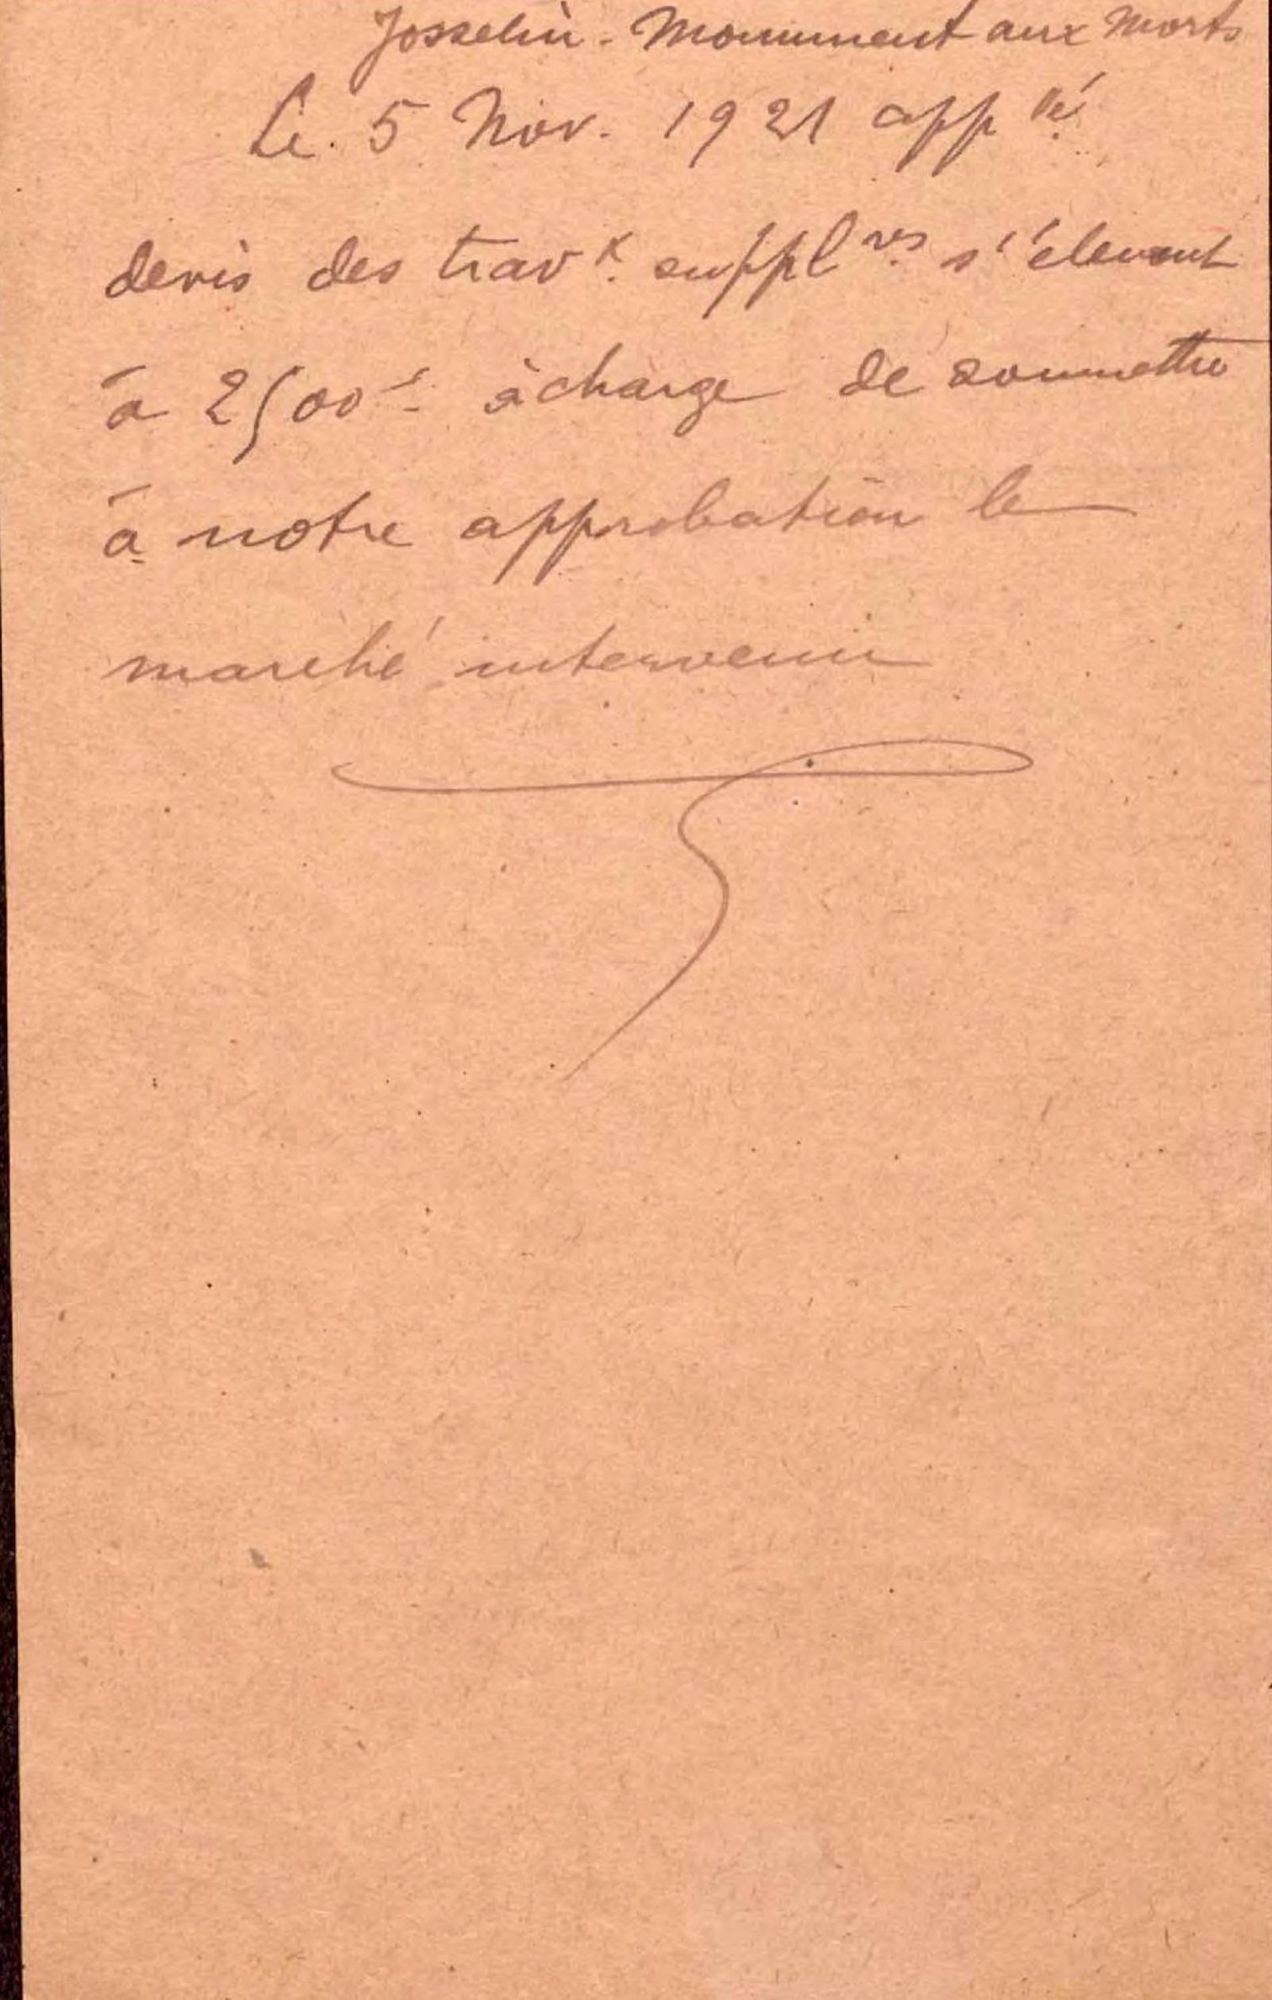 Josselin - Monument aux Morts
Le 5 Nov. 1921 app vé
devis des travx. supplres s'élevant
à 2500f à charge de soumettre
à notre approbation le
marché intervenir